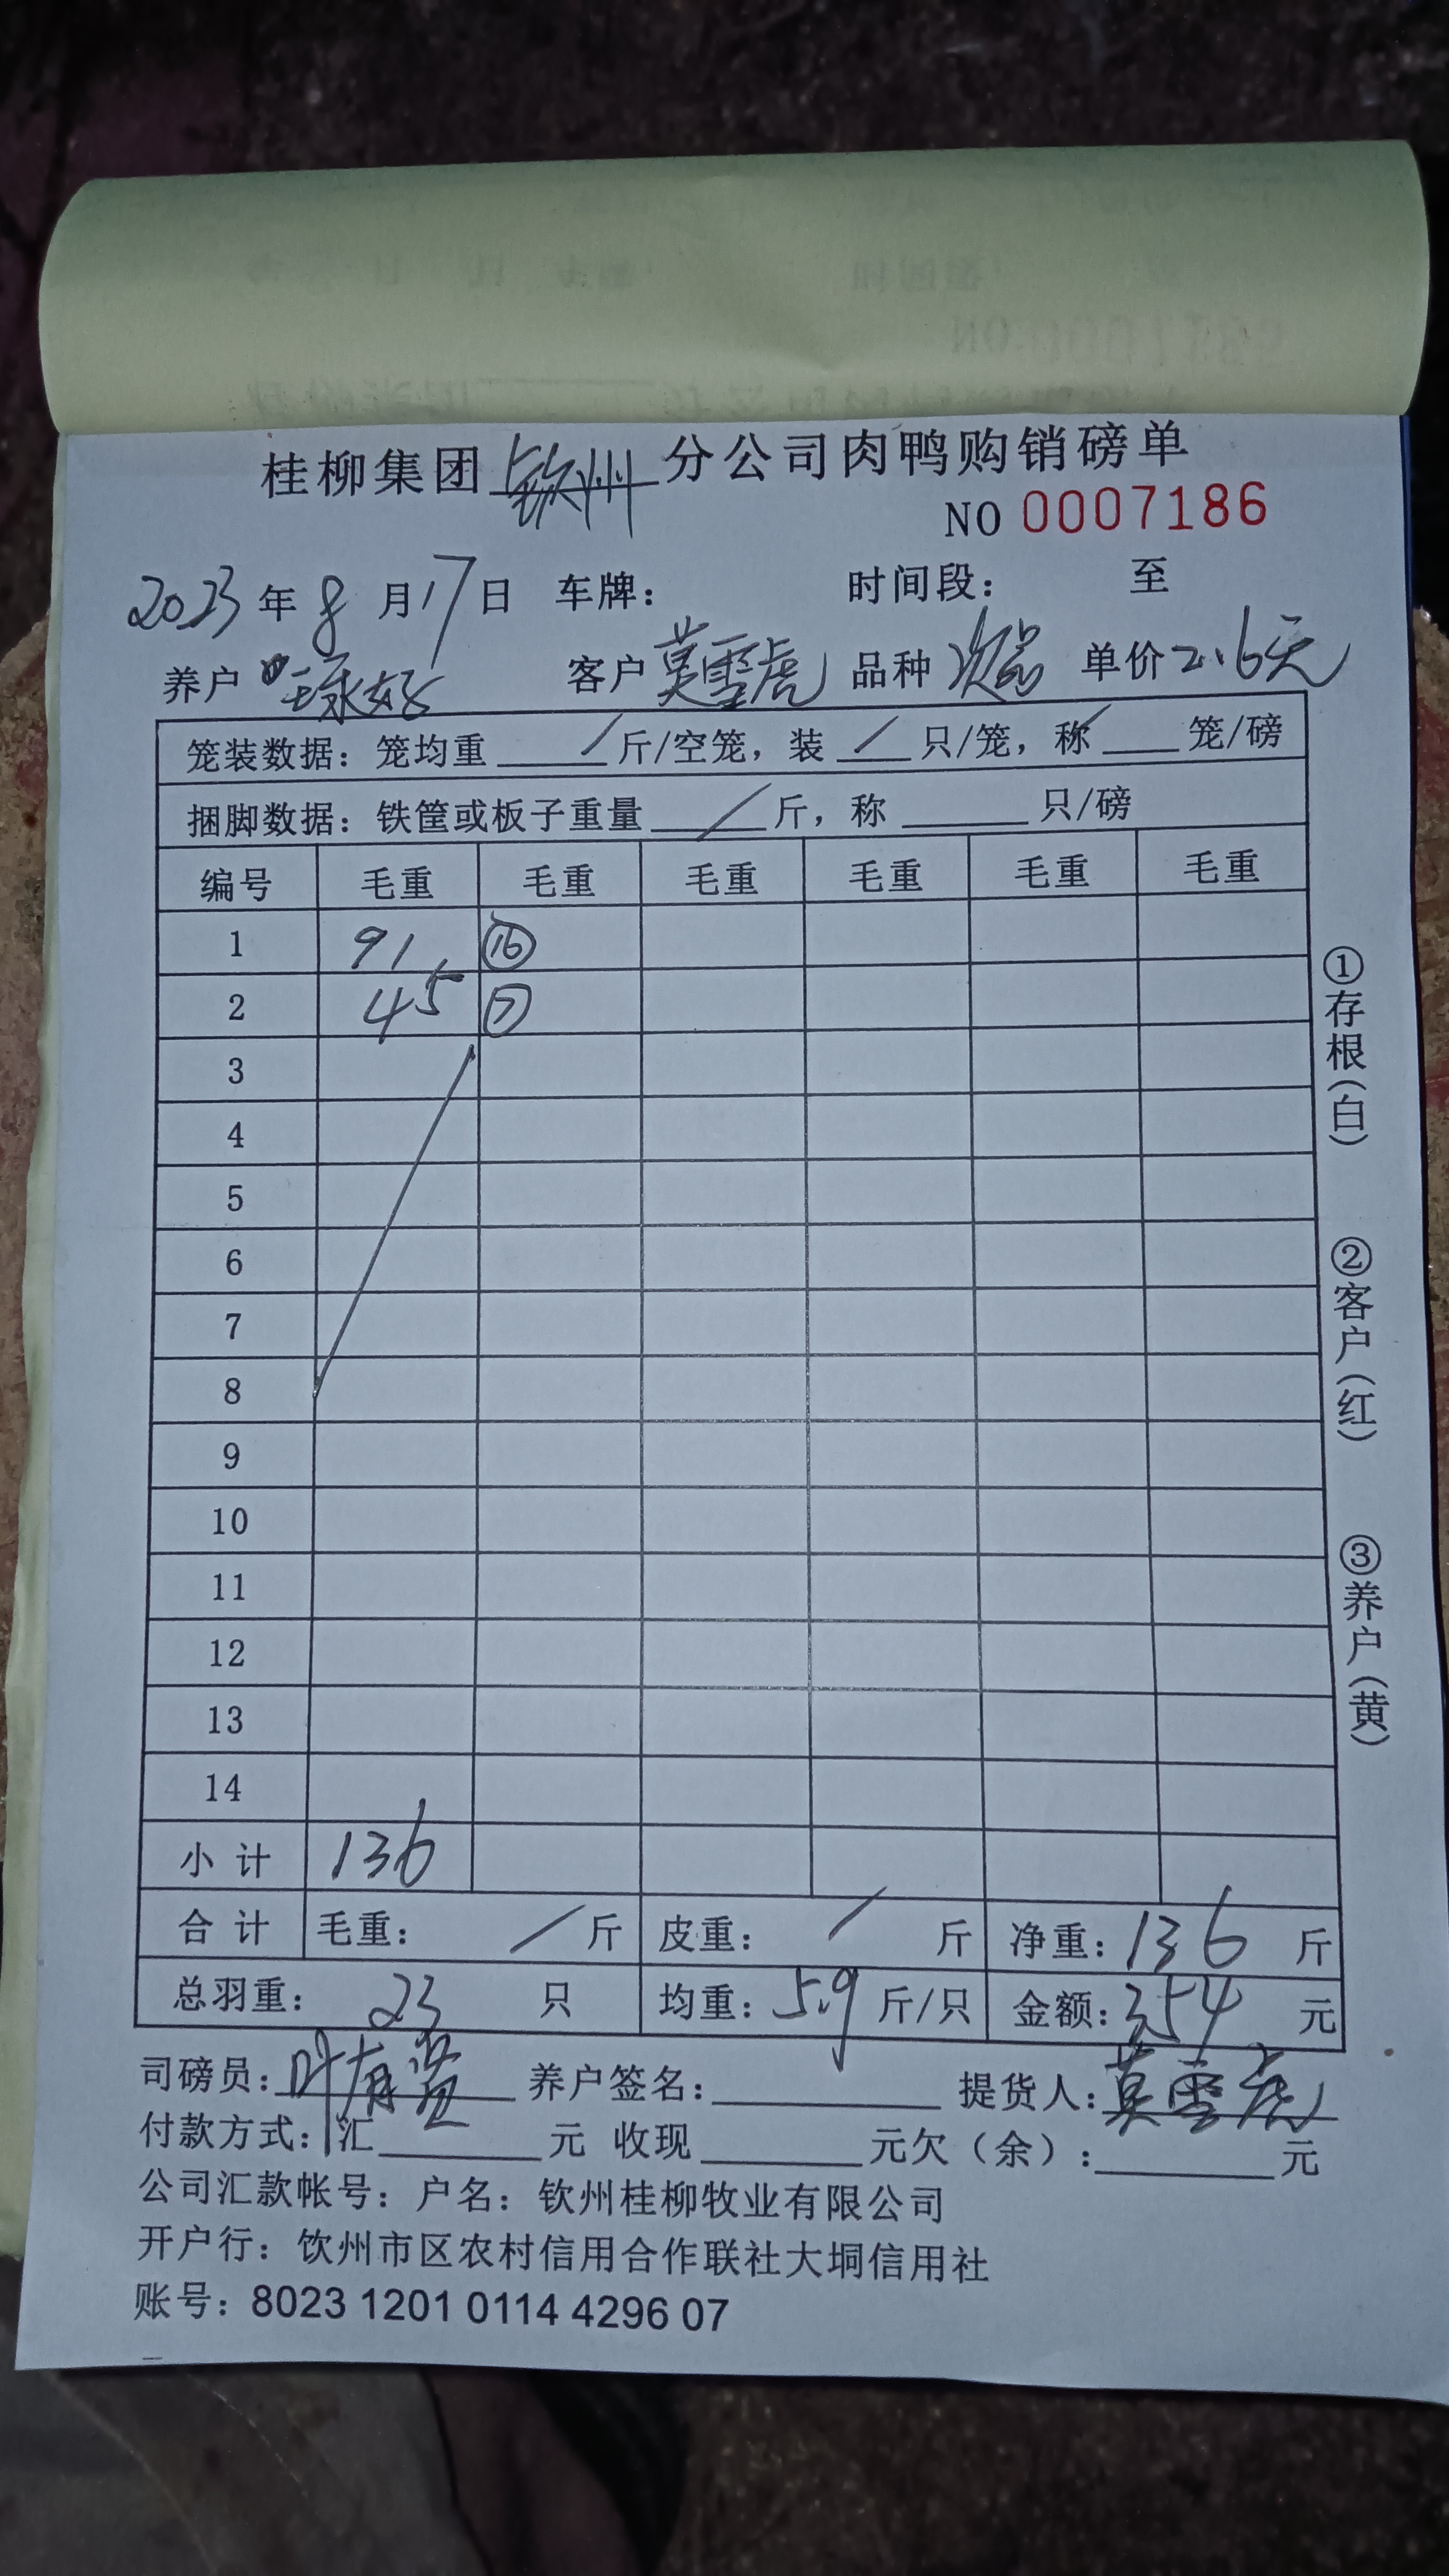 桂柳集团钦州分公司肉鸭购销磅单
NO 0007186
2023年8月17日 车牌： 时间段： 至
养户 客户莫雪虎 品种次品 单价2.6元
笼装数据：笼均重 / 斤/空笼，装 / 只/笼，称 / 笼/磅
捆脚数据：铁筐或板子重量 / 斤，称____只/磅
编号 毛重 毛重 毛重 毛重 毛重 毛重
1 91 ⑯
2 45 ⑦
3
4
5
6
7
8
9
10
11
12
13
14
小计 136
合计 毛重： / 斤 皮重： / 斤 净重：136 斤
总羽重： 23 只 均重：5.9斤/只 金额：354 元
司磅员： 养户签名：____ 提货人：莫雪虎
付款方式：汇____元 收现____元欠（余）：____元
公司汇款帐号：户名：钦州桂柳牧业有限公司
开户行：饮州市区农村信用合作联社大垌信用社
账号：8023 1201 0114 4296 07
①存根（白）
②客户（红）
③养户（黄）